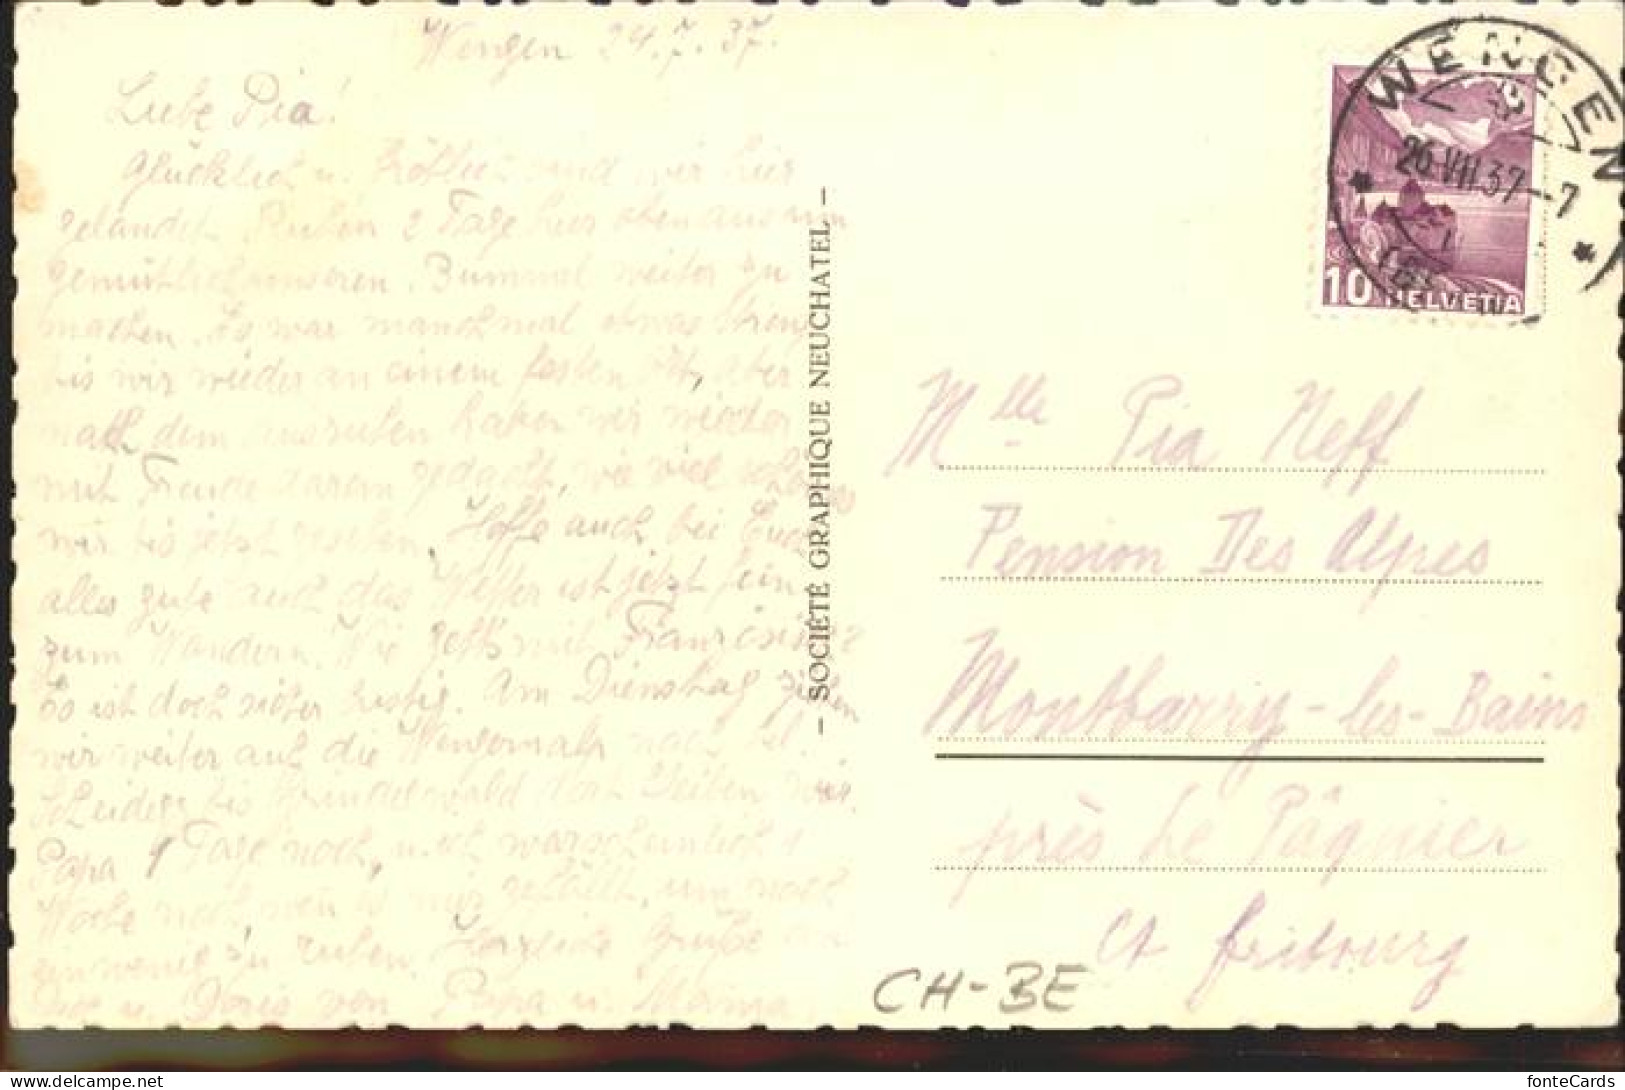 Wengen 24.7.37.
Liebe Pia!
Glücklich u. fröhlich sind wir hier
gelandet. Ruhen 2 Tage hier oben aus um
gemütlich unseren Bummel weiter zu
machen. Es war manchmal etwas streng
bis wir wieder an einem festen Ort, aber
nach dem ausruhen haben wir wieder
mit Freude daran gedacht, wie viel schönes
wir bis jetzt gesehen. Hoffe auch bei Euch
alles gute auch das Wetter ist jetzt fein
zum Wandern. Wie geht's mit Französisch?
Es ist doch sicher lustig. Am Dienstag ziehen
wir weiter auf die Wengernalp nach kl.
Scheidegg bis Grindelwald dort bleiben wir.
Papa 1 Tage noch, u. ich warscheinlich 1
Woche noch, wen es mir gefällt, um noch
ein wenig zu ruhen. Herzliche Grüße an
Dich u. Doris von Papa u. Mama.
- SOCIÉTÉ GRAPHIQUE NEUCHATEL -
WENGEN
26.VII.37.-7
10 HELVETIA
Mlle Pia Neff
Pension Des Alpes
Montbarry-les-Bains
près Le Pâquier
Ct fribourg
CH-BE
fonteCards